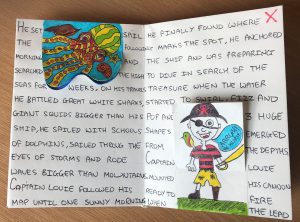 HE SET SAIL
THE FOLLOWING
MORNING
SEARCHED THE HIGH
SEAS FOR WEEKS, ON HIS TRAVELS
HE BATTLED GREAT WHITE SHARKS,
GIANT SQUIDS BIGGER THAN HIS
SHIP, HE SAILED WITH SCHOOLS
OF DOLPHINS, SAILED THE
EYES OF STORMS AND RODE
WAVES BIGGER THAN MOUNTAINS,
CAPTAIN LOUIE FOLLOWED HIS
MAP UNTIL ONE SUNNY MORNING
HE FINALLY FOUND WHERE X
MARKS THE SPOT, HE ANCHORED
THE SHIP AND WAS PREPARING
TO DIVE IN SEARCH OF THE
TREASURE WHEN THE WATER
STARTED TO SWIRL, FIZZ AND
POP AND 3 HUGE
SHAPES EMERGED
FROM THE DEPTHS,
CAPTAIN LOUIE
MOUNTED HIS CANNON
READY TO FIRE
WHEN THE LEAD